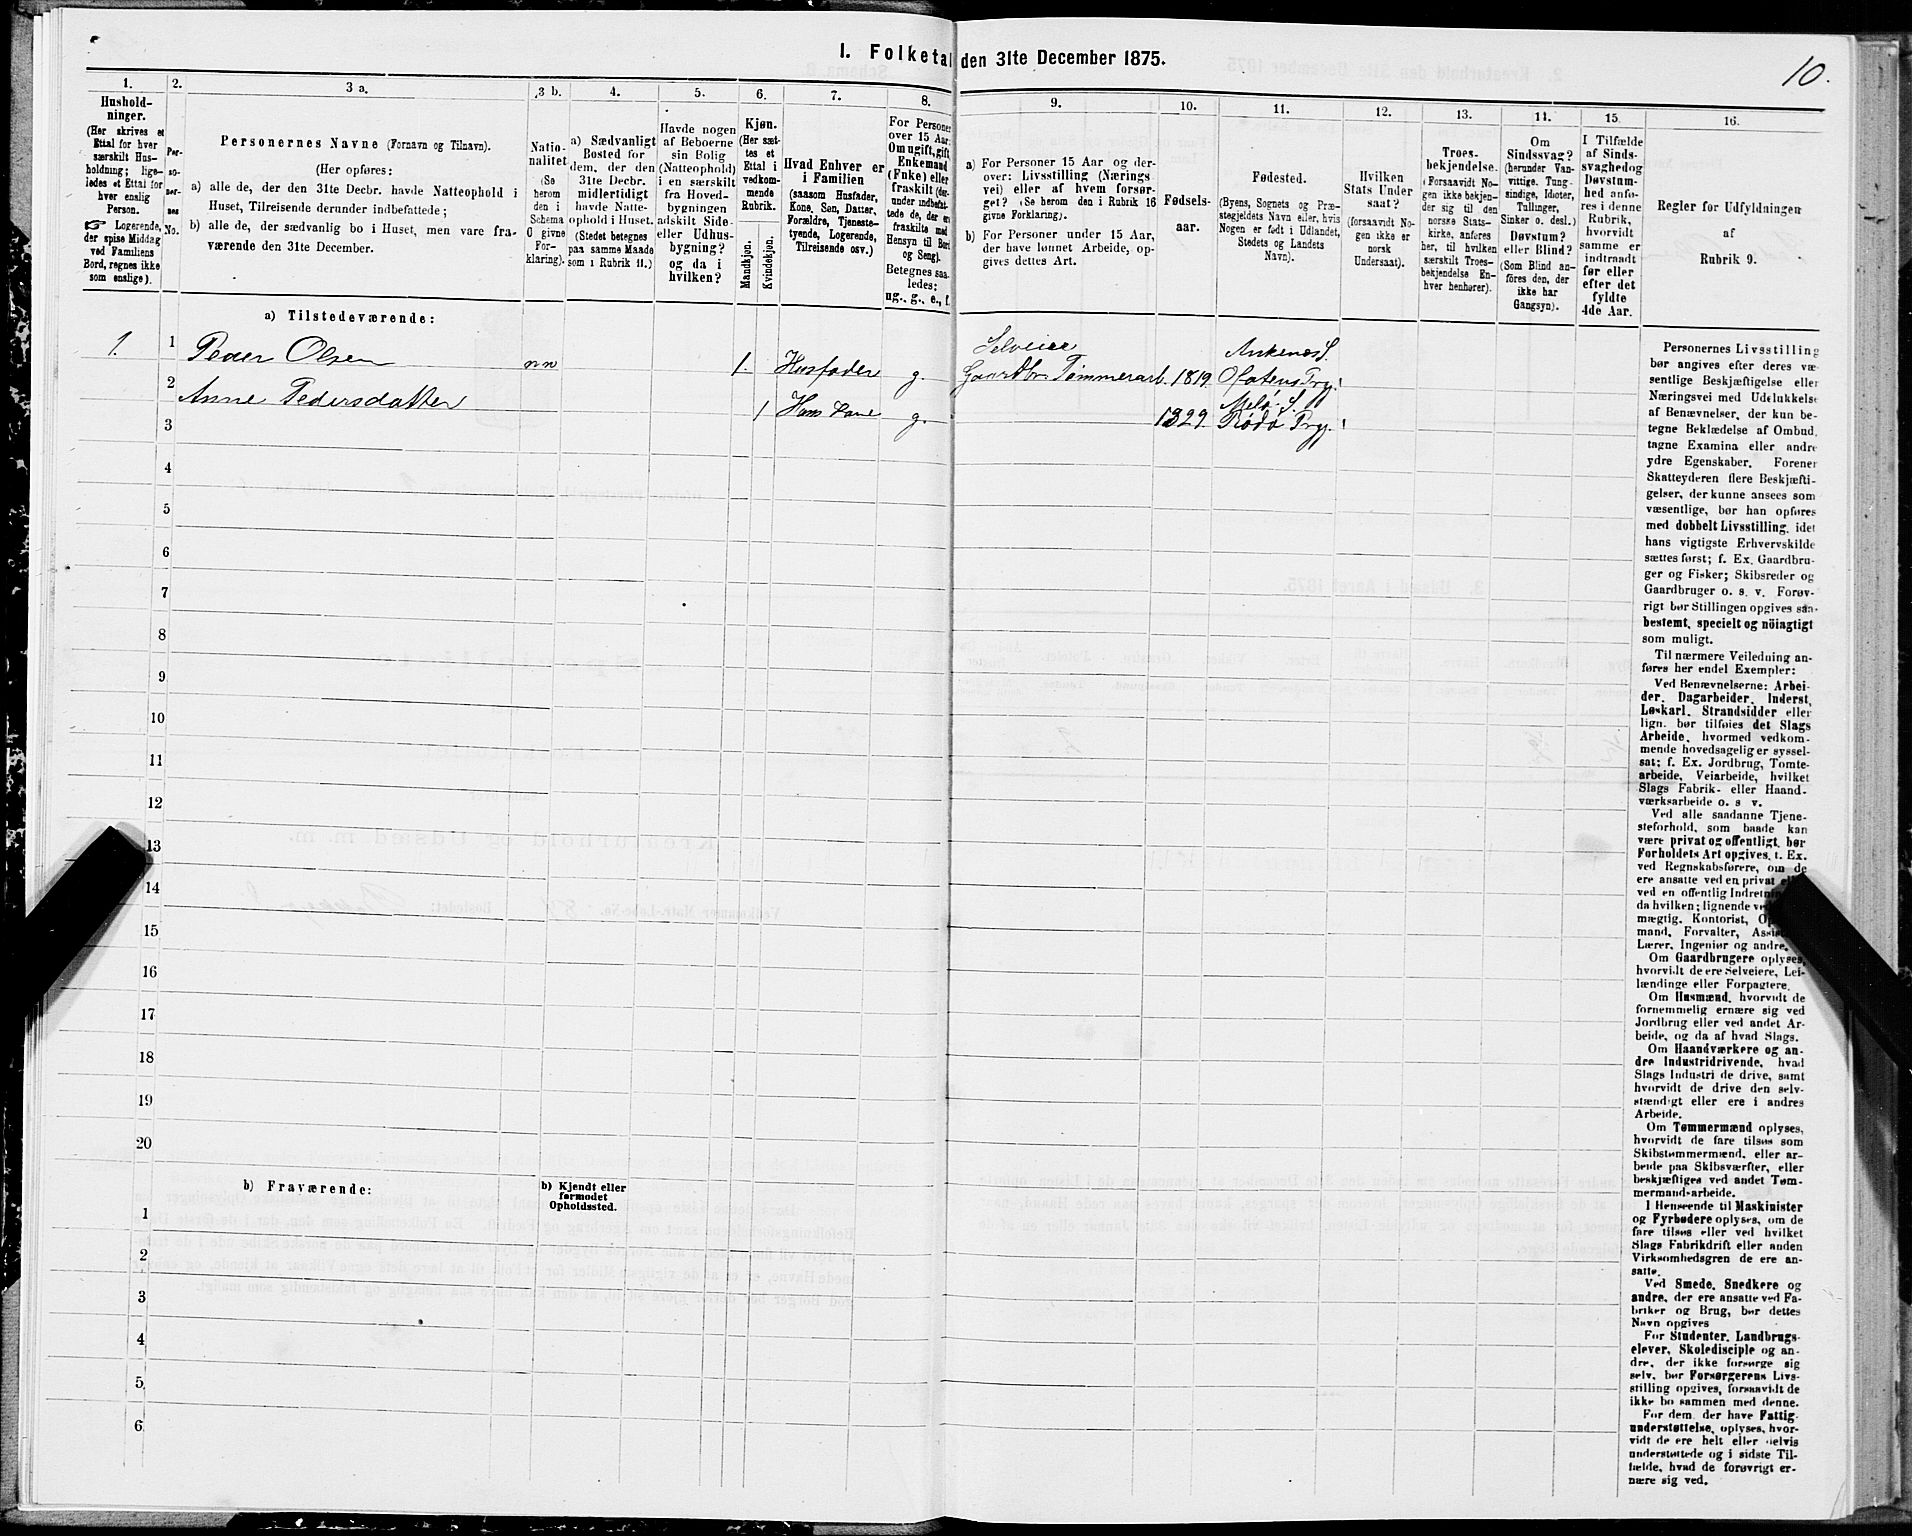 I. Folketal den 31te December 1875.
10.
1.
Hushold-
ninger.
(Her skrives et
Ettal for hver
særskilt Hus-
holdning; lige-
ledes et Ettal for
hver enslig
Person.
Logerende,
der spise Middag
ved Familiens
Bord, regnes ikke
som enslige).
2.
Per-
so-
ner-
nes
No.
3 a.
Personernes Navne (Fornavn og Tilnavn).
(Her opføres:
a) alle de, der den 31te Decbr. havde Natteophold i
Huset, Tilreisende derunder indbefattede;
b) alle de, der sædvanlig bo i Huset, men vare fra-
værende den 31te December.
3 b.
Natio-
nalitet
(Se
herom
den i
Schema
O givne
For-
klaring).
4.
a) Sædvanligt
Bosted for
dem, der den
31te Decbr.
midlertidigt
havde Natte-
ophold i Huset.
(Stedet betegnes
paa samme Maade
som i Rubrik 11.)
5.
Havde nogen
af Beboerne
sin Bolig
(Natteophold)
i en særskilt
fra Hoved-
bygningen
adskilt Side-
eller Udhus-
bygning?
og da i
hvilken?
6.
Kjøn.
(Her sæt-
tes et
Ettal i
vedkom-
mende
Rubrik.
Mandkjøn.
Kvindekjøn.
7.
Hvad Enhver er
i Familien
(saasom Husfader,
Kone, Søn, Datter,
Forældre, Tjeneste-
tyende, Logerende,
Tilreisende osv.)
8.
For Personer
over 15 Aar:
Om ugift, gift,
Enkemand
(Enke) eller
fraskilt (der-
under indbefat-
tede de, der ere
fraskilte med
Hensyn til Bord
og Seng).
Betegnes saa-
ledes:
ug., g., e., f.
9.
a) For Personer 15 Aar og der-
over: Livsstilling (Nærings-
vei) eller af hvem forsør-
get? (Se herom den i Rubrik 16
givne Forklaring).
b) For Personer under 15 Aar,
der have lønnet Arbeide, op-
gives dettes Art.
10.
Fødsels-
aar.
11.
Fødested.
(Byens, Sognets og Præ-
stegjeldets Navn eller, hvis
Nogen er født i Udlandet,
Stedets og Landets
Navn).
12.
Hvilken
Stats Under
saat?
(forsaavidt No-
gen ikke er
norsk
Undersaat).
13.
Troes-
bekjendelse.
(Forsaavidt No-
gen ikke bekjen-
der sig til den
norske Stats-
kirke, anføres
her, til hvilken
særskilt Troes-
bekjendelse En-
hver henhører).
14.
Om
Sindssvag?
(herunder Van-
vittige, Tung-
sindige, Idioter,
Tullinger,
Sinker o. desl.)
Døvstum?
eller Blind?
(Som Blind an-
føres den, der
ikke har
Gangsyn).
15.
I Tilfælde
af Sinds-
svaghed og
Døvstum-
hed anfø-
res i denne
Rubrik,
hvorvidt
samme er
indtraadt
før eller
efter det
fyldte
4de Aar.
16.
Regler for Udfyldningen
af
Rubrik 9.
a) Tilstedeværende:
1. 1 Peder Olsen nn 1. Husfader g. Selveier Gaardbr. Tømmerarb. 1819. Ankenes S. Ofotens Prg.
2 Anne Pedersdatter 1 Hans Kone g. 1829. Melø S. Rødø Prg.
3
4
5
6
7
8
9
10
11
12
13
14
15
16
17
18
19
20
b) Fraværende:
b) Kjendt eller
formodet
Opholdssted.
1
2
3
4
5
6
Personernes Livsstilling
bør angives efter deres væ-
sentlige Beskjæftigelse eller
Næringsvei med Udelukkelse
af Benævnelser, der kun be-
tegne Beklædelse af Ombud,
tagne Examina eller andre
ydre Egenskaber. Forener
Skatteyderen flere Beskjæfti-
gelser, der kunne ansees som
væsentlige, bør han opføres
med dobbelt Livsstilling, idet
hans vigtigste Erhvervskilde
sættes først; f. Ex. Gaardbru-
ger og Fisker; Skibsreder og
Gaardbruger o. s. v. Forøv-
rigt bør Stillingen opgives saa-
bestemt, specielt og nöiagtigt
som muligt.
Til nærmere Veiledning an-
føres her endel Exempler:
Ved Benævnelserne: Arbei-
der, Dagarbeider, Inderst,
Løskarl, Strandsidder eller
lign. bør tilføies det Slags
Arbeide, hvormed vedkom-
mende hovedsagelig er syssel-
sat; f. Ex. Jordbrug, Tomte-
arbeide, Veiarbeide, hvilket
Slags Fabrik- eller Haand-
værksarbeide o. s v.
Ved alle saadanne Tjene-
steforhold, som baade kan
være privat og offentligt, bør
Forholdets Art opgives, t. Ex.
ved Regnskabsførere, om de
ere ansatte ved en privat
ved en offentlig
da hvilken; lignende
mægtig, Kontorist,
mand, Forvalter,
Lærer, Ingeniør og andre.
Om Gaardbrugere oplyses,
hvorvidt de ere Selveiere, Lei-
lændinge eller Forpagtere.
Om Husmænd, hvorvidt de
fornemmelig ernære sig ved
Jordbrug eller ved andet Ar-
beide, og da af hvad Slags.
Om Haandværkere og an-
dre Industridrivende, hvad
Slags Industri de drive, samt
hvorvidt de drive den selv-
stændigt eller ere i andres
Arbeide.
Om Tømmermænd oplyses,
hvorvidt de fare tilsøs som
Skibstømmermænd, eller ar-
beide paa Skibsværfter, eller
beskjæftiges ved andet Tøm-
mermandsarbeide.
I Henseende til Maskinister
og Fyrbødere oplyses, om de
fare tilsøs eller ved hvilket
Slags Fabrikdrift eller anden
Virksomhedsgren de ere an-
satte.
Ved Smede, Snedkere og
andre, der ere ansatte ved Fa-
briker og Brug, bør dettes
Navn opgives
For Studenter, Landbrugs-
elever, Skoledisciple og an-
dre, der ikke forsørge sig
selv, bør Forsørgerens Livs-
stilling opgives, forsaavidt de
ikke bo sammen med denne.
For dem, der have Fattig-
understøttelse, oplyses, hvor-
vidt de ere helt eller delvis
understøttede og i sidste Til-
fælde, hvad de forøvrigt er-
nære sig ved.